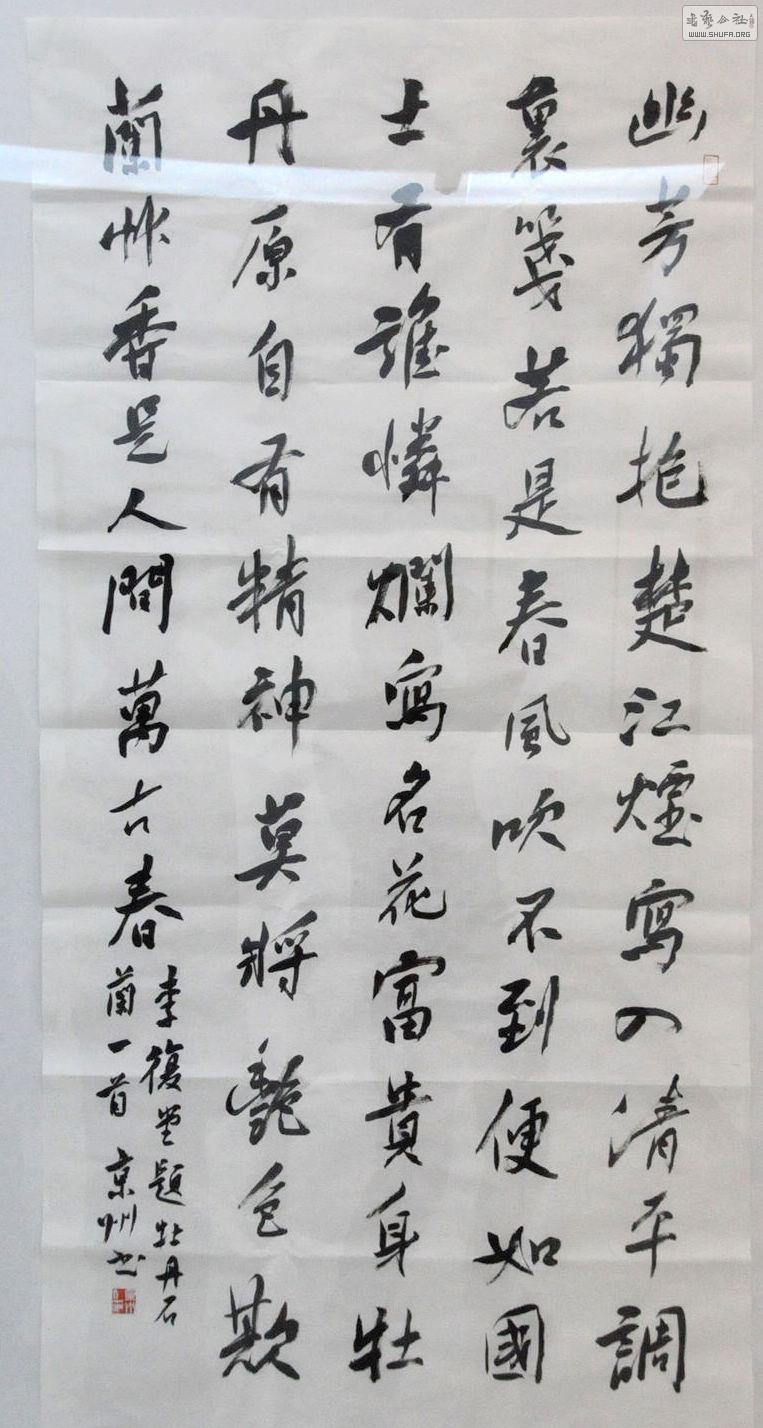 幽芳獨抱楚江煙寫入清平調
裏箋若是春風吹不到便如國
士有誰憐爛寫名花富貴身牡
丹原自有精神莫將艷色欺
蘭艸香是人間萬古春
李復堂題牡丹石
蘭一首 京州书
書藝公社
WWW.SHUFA.ORG